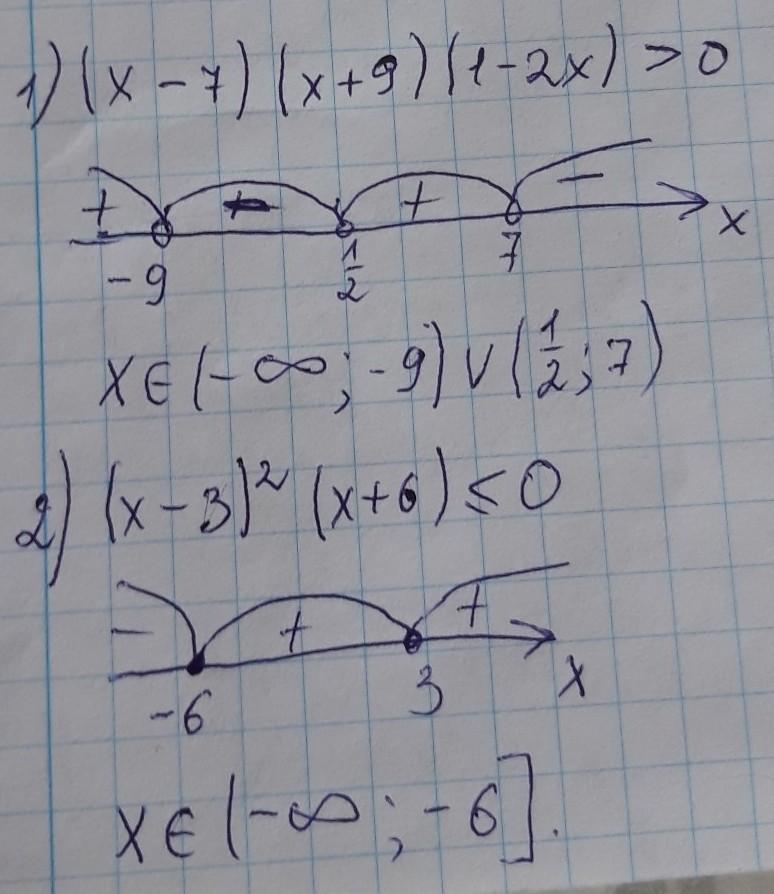 1) (x - 7) (x + 9) (1 - 2x) > 0
+ - + -
-9 1/2 7 x
x ∈ (-∞; -9) ∪ (1/2; 7)
2) (x - 3)² (x + 6) ≤ 0
- + +
-6 3 x
x ∈ (-∞; -6].